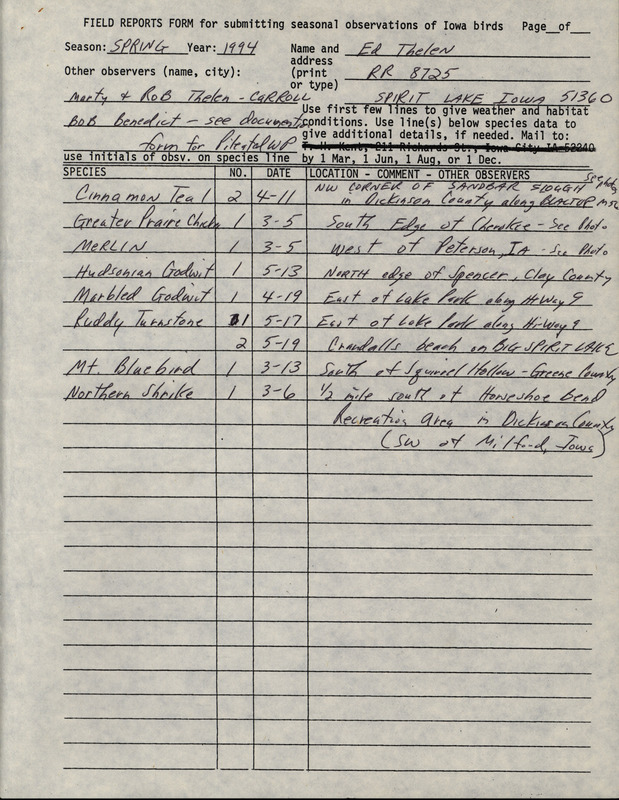 FIELD REPORTS FORM for submitting seasonal observations of Iowa birds Page__of__
Season: SPRING Year: 1994 Name and address (print or type) Ed Thelen
RR 8725
SPIRIT LAKE IOWA 51360
Other observers (name, city):
Marty & Rob Thelen - CARROLL
Bob Benedict - see documents
form for WP
use initials of obsv. on species line
Use first few lines to give weather and habitat
conditions. Use line(s) below species data to
give additional details, if needed. Mail to:
T. H. Kent, 211 Richards St., Iowa City IA 52240
by 1 Mar, 1 Jun, 1 Aug, or 1 Dec.
SPECIES NO. DATE LOCATION - COMMENT - OTHER OBSERVERS
Cinnamon Teal 2 4-11 NW CORNER OF SANDBAR SLOUGH see photo
in Dickinson County along BLACKTOP
Greater Praire Chicken 1 3-5 South Edge of Cherokee - See Photo
MERLIN 1 3-5 West of Peterson, IA - See Photo
Hudsonian Godwit 1 5-13 NORTH edge of Spencer, Clay County
Marbled Godwit 1 4-19 East of Lake Park along HiWay 9
Ruddy Turnstone 1 5-17 East of Lake Park along Hi-Way 9
2 5-19 Crandalls beach on BIG SPIRIT LAKE
Mt. Bluebird 1 3-13 South of Squirrel Hollow - Greene County
Northern Shrike 1 3-6 1/2 mile south of Horseshoe Bend
Recreation Area in Dickinson County
(SW of Milford, Iowa)